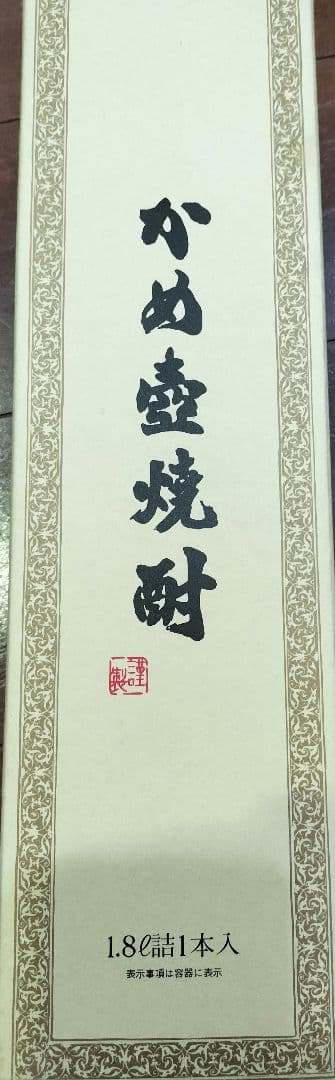 かめ壺焼酎
謹製
1.8ℓ詰1本入
表示事項は容器に表示